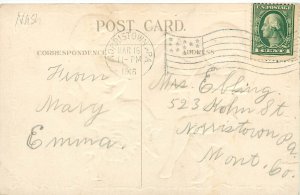 POST CARD.
NORRISTOWN, PA.
MAR 16
-PM
1916
CORRESPONDENCE
ADDRESS
U.S. POSTAGE
1 CENT 1
From
Mary
Emma.
Mrs. Ebling
523 Kohn St
Norristown Pa
Mont. Co.